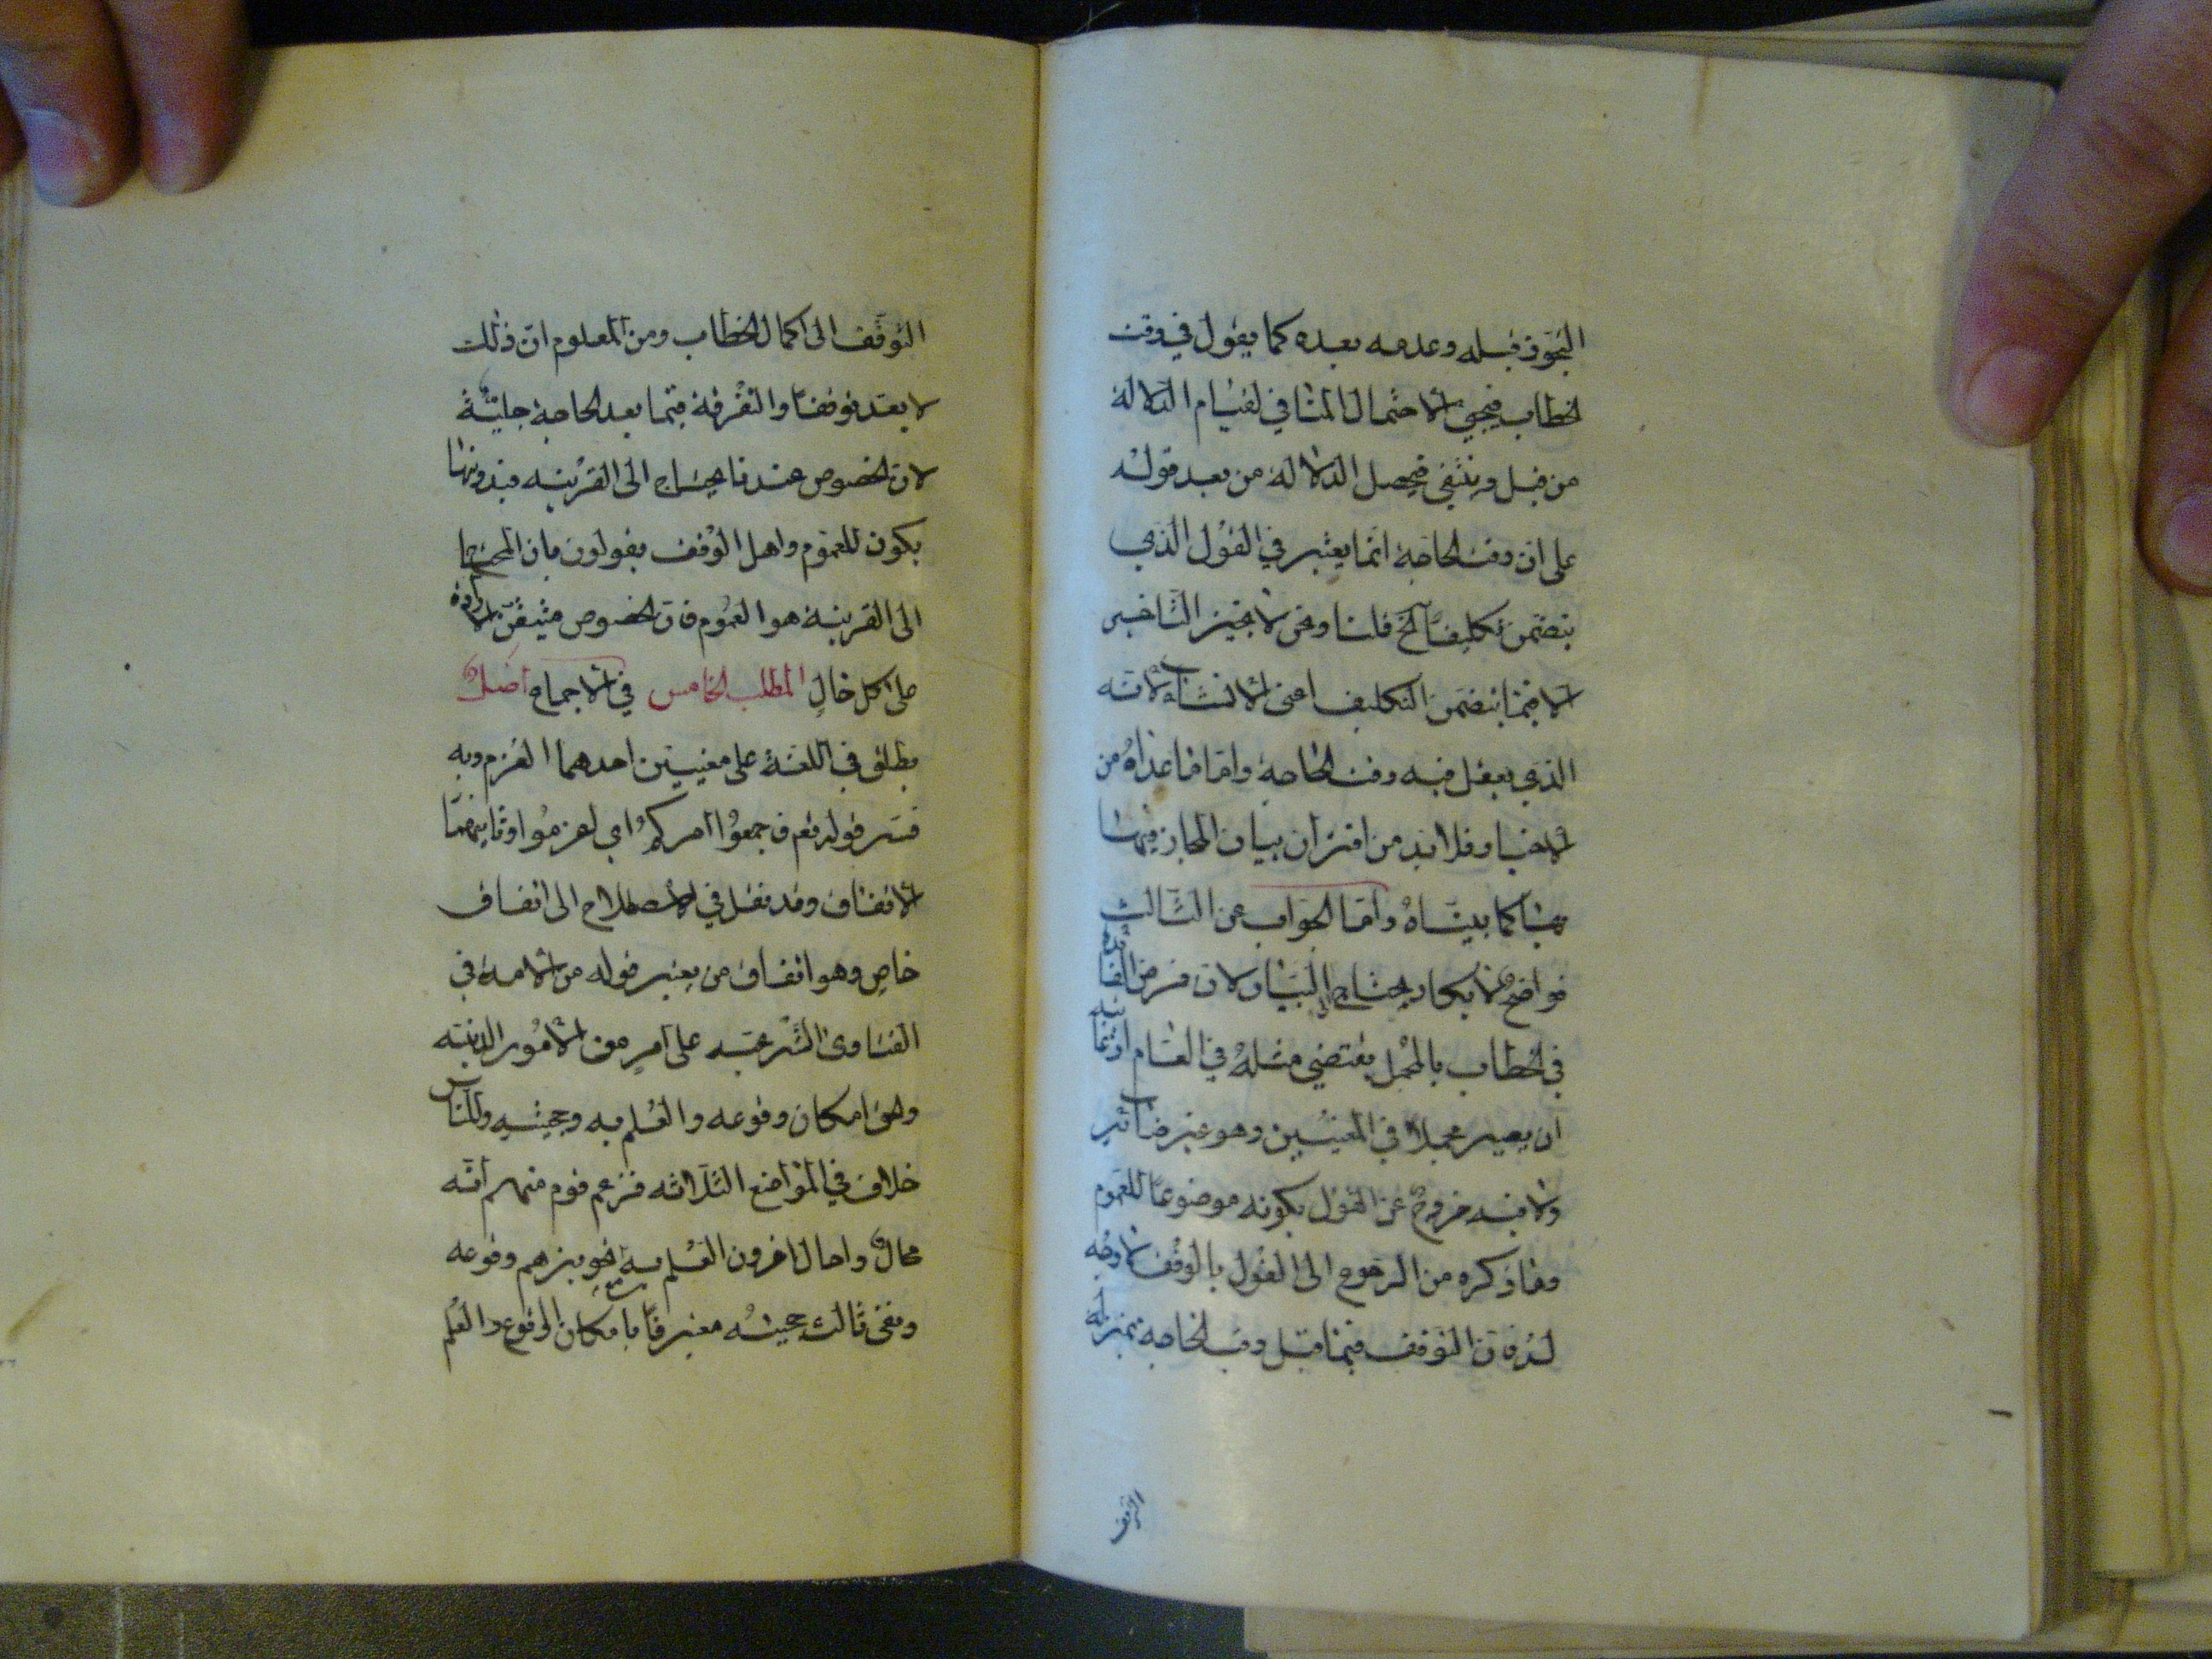 التجوز قبله وعدمه بعده كما يقول في وقت
الخطاب فيجئ الاحتمال المنافي لقيام الدلالة
من قبل وينتفي فيحصل الدلالة من بعد قوله
على ان وقت الحاجة انما يعتبر في القول الذي
يتضمن تكليفا الخ قلنا ونحن لا نجيز التاخير
الا فيما يتضمن التكليف اعنى الانشاء لانه
الذي يعقل فيه وقت الحاجة واما ما عداه من
الاخبار فلا بد من اقتران بيان المجاز فيها
بها كما بيناه واما الجواب عن الثالث
فواضح لا يكاد يحتاج الى البيان لان فرض الفائدة
في الخطاب بالمجمل يقتضي مثله في العام اذ غايته
ان يصير مجملا في المعنيين وهو غير ضائر
ولا فيه خروج عن القول بكونه موضوعا للعموم
وما ذكره من الرجوع الى القول بالوقف لا وجه
له فان التوقف فيما قبل وقت الحاجة بمنزلة
التوقف
التوقف الى اكمال الخطاب ومن المعلوم ان ذلك
لا يعد توقفا والتفرقة فيما بعد الحاجة جلية
لان الخصوص عندنا يحتاج الى القرينه فبدونها
يكون للعموم واهل الوقف يقولون بان المحتاج
الى القرينة هو العموم فان الخصوص متيقن الارادة
على كل حال المطلب الخامس في الاجماع اصل
يطلق في اللغة على معنيين احدهما العزم وبه
فسر قوله تعم فاجمعوا امركم اي اعزموا وثانيهما
الاتفاق وقد نقل في الاصطلاح الى اتفاق
خاص وهو اتفاق من يعتبر قوله من الامة في
الفتاوى الشرعيه على امر من الامور الدينيه
وهو امكان وقوعه والعلم به وحجيته وللناس
خلاف في المواضع الثلاثه فزعم قوم منهم انه
محال واحال اخرون العلم به مع تجويزهم وقوعه
ونفى ثالث حجيته معترفا بامكان الوقوع والعلم